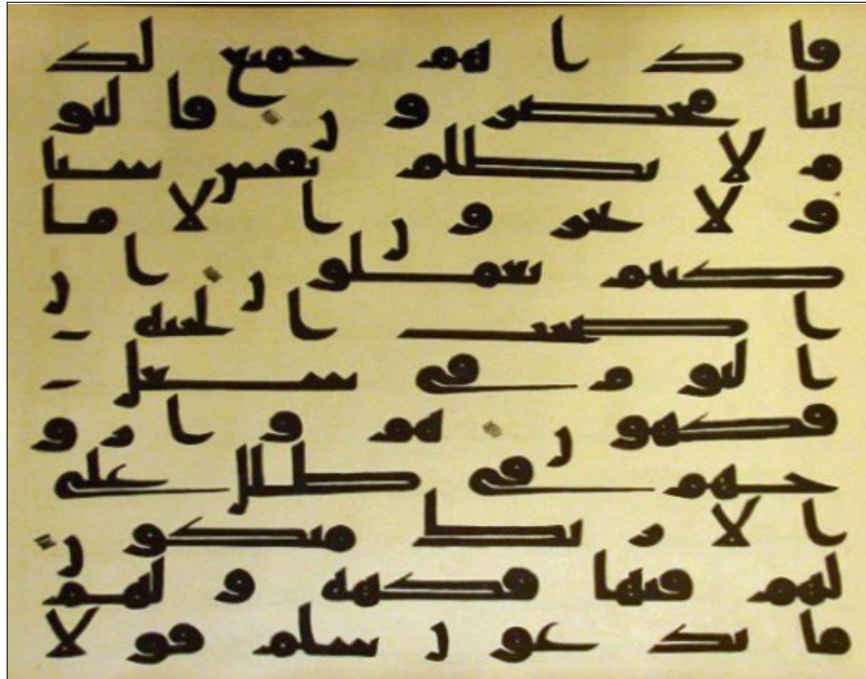 فاذا هم جميع لد
ينا محضرون فاليو
م لا تظلم نفس شيا
ولا تجزون الا ما
كنتم تعملون ان
اصحب الجنه
اليوم في شغل
فكهون هم وازو
جهم في ظلل على
الاريك متكون
لهم فيها فكهه ولهم
ما يدعون سلم قولا